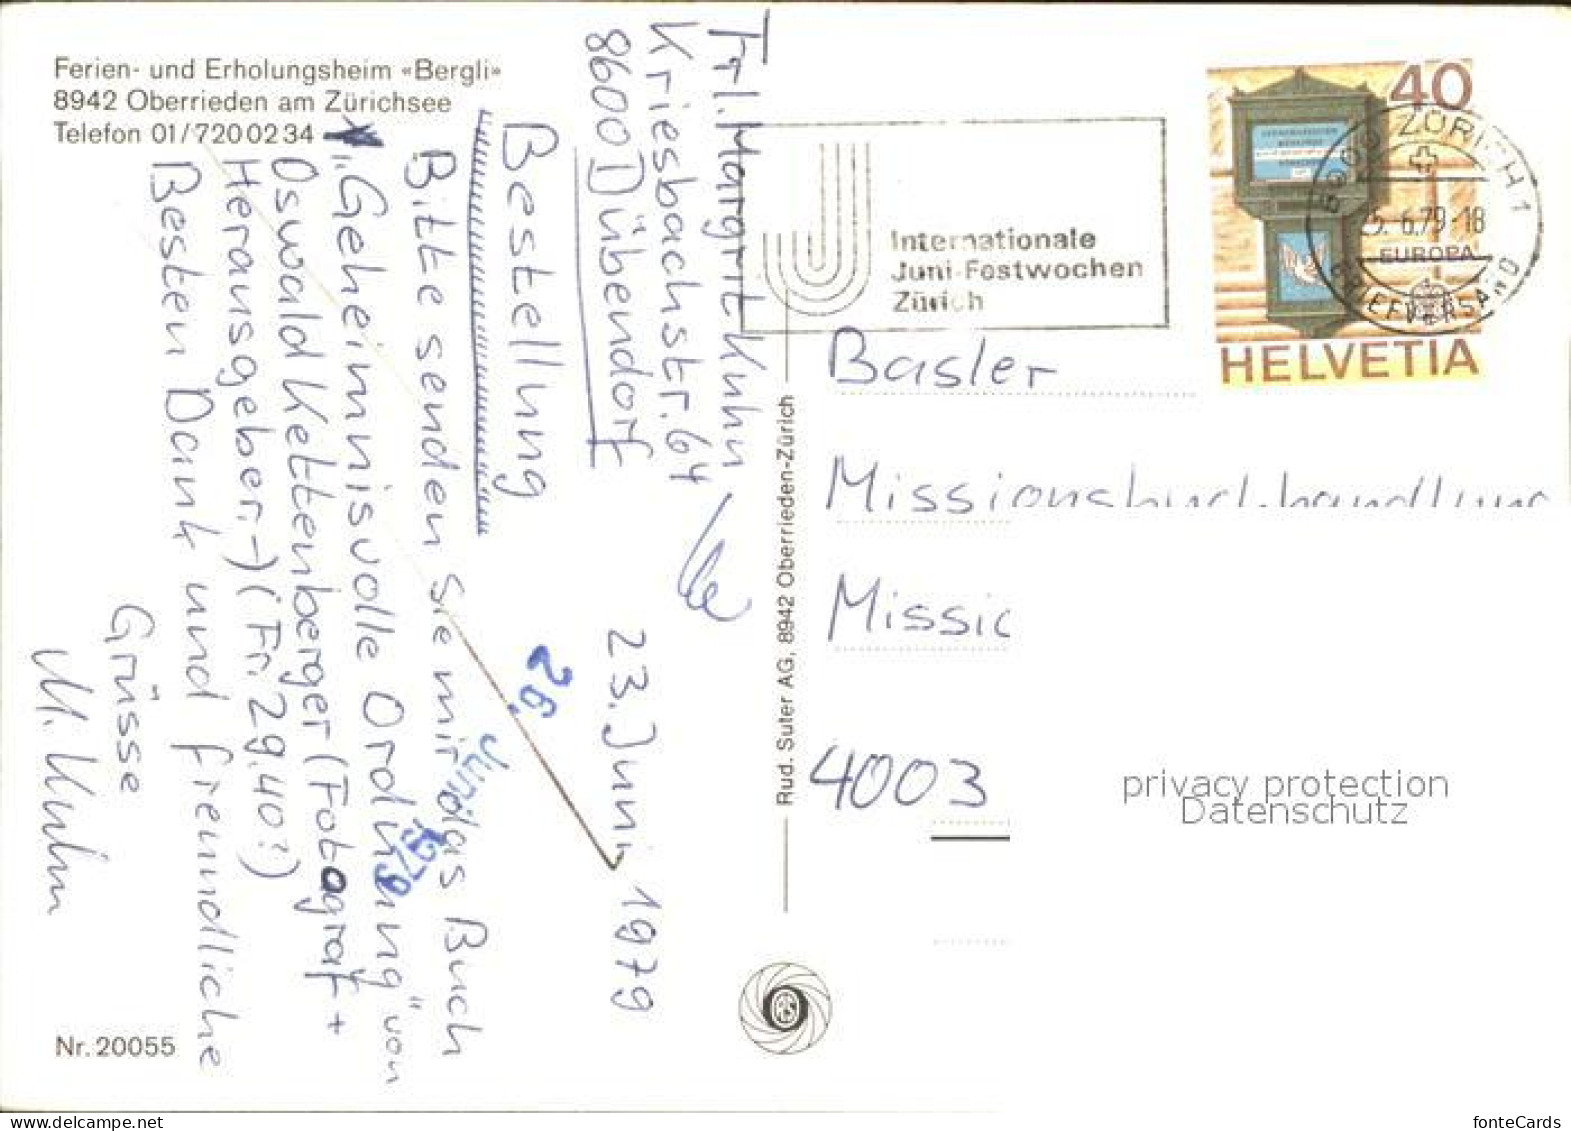 Ferien- und Erholungsheim «Bergli»
8942 Oberrieden am Zürichsee
Telefon 01/720 02 34
Frl. Margrit Kuhn
Kriesbachstr. 64
8600 Dübendorf
23. Juni 1979
Bestellung
Bitte senden Sie mir das Buch
"Geheimnisvolle Ordnung" von
Oswald Kettenberger (Fotograf +
Herausgeber.-) (Fr. 29.40?)
Besten Dank und freundliche
Grüsse
M. Kuhn
26. Juni 1979
Nr. 20055
Rud. Suter AG, 8942 Oberrieden-Zürich
Internationale
Juni-Festwochen
Zürich
40
8000 ZÜRICH 1
25. 6.79-18
BRIEFVERSAND
EUROPA
HELVETIA
Basler
Missionsbuchhandlung
Missio
4003
privacy protection
Datenschutz
fonteCards